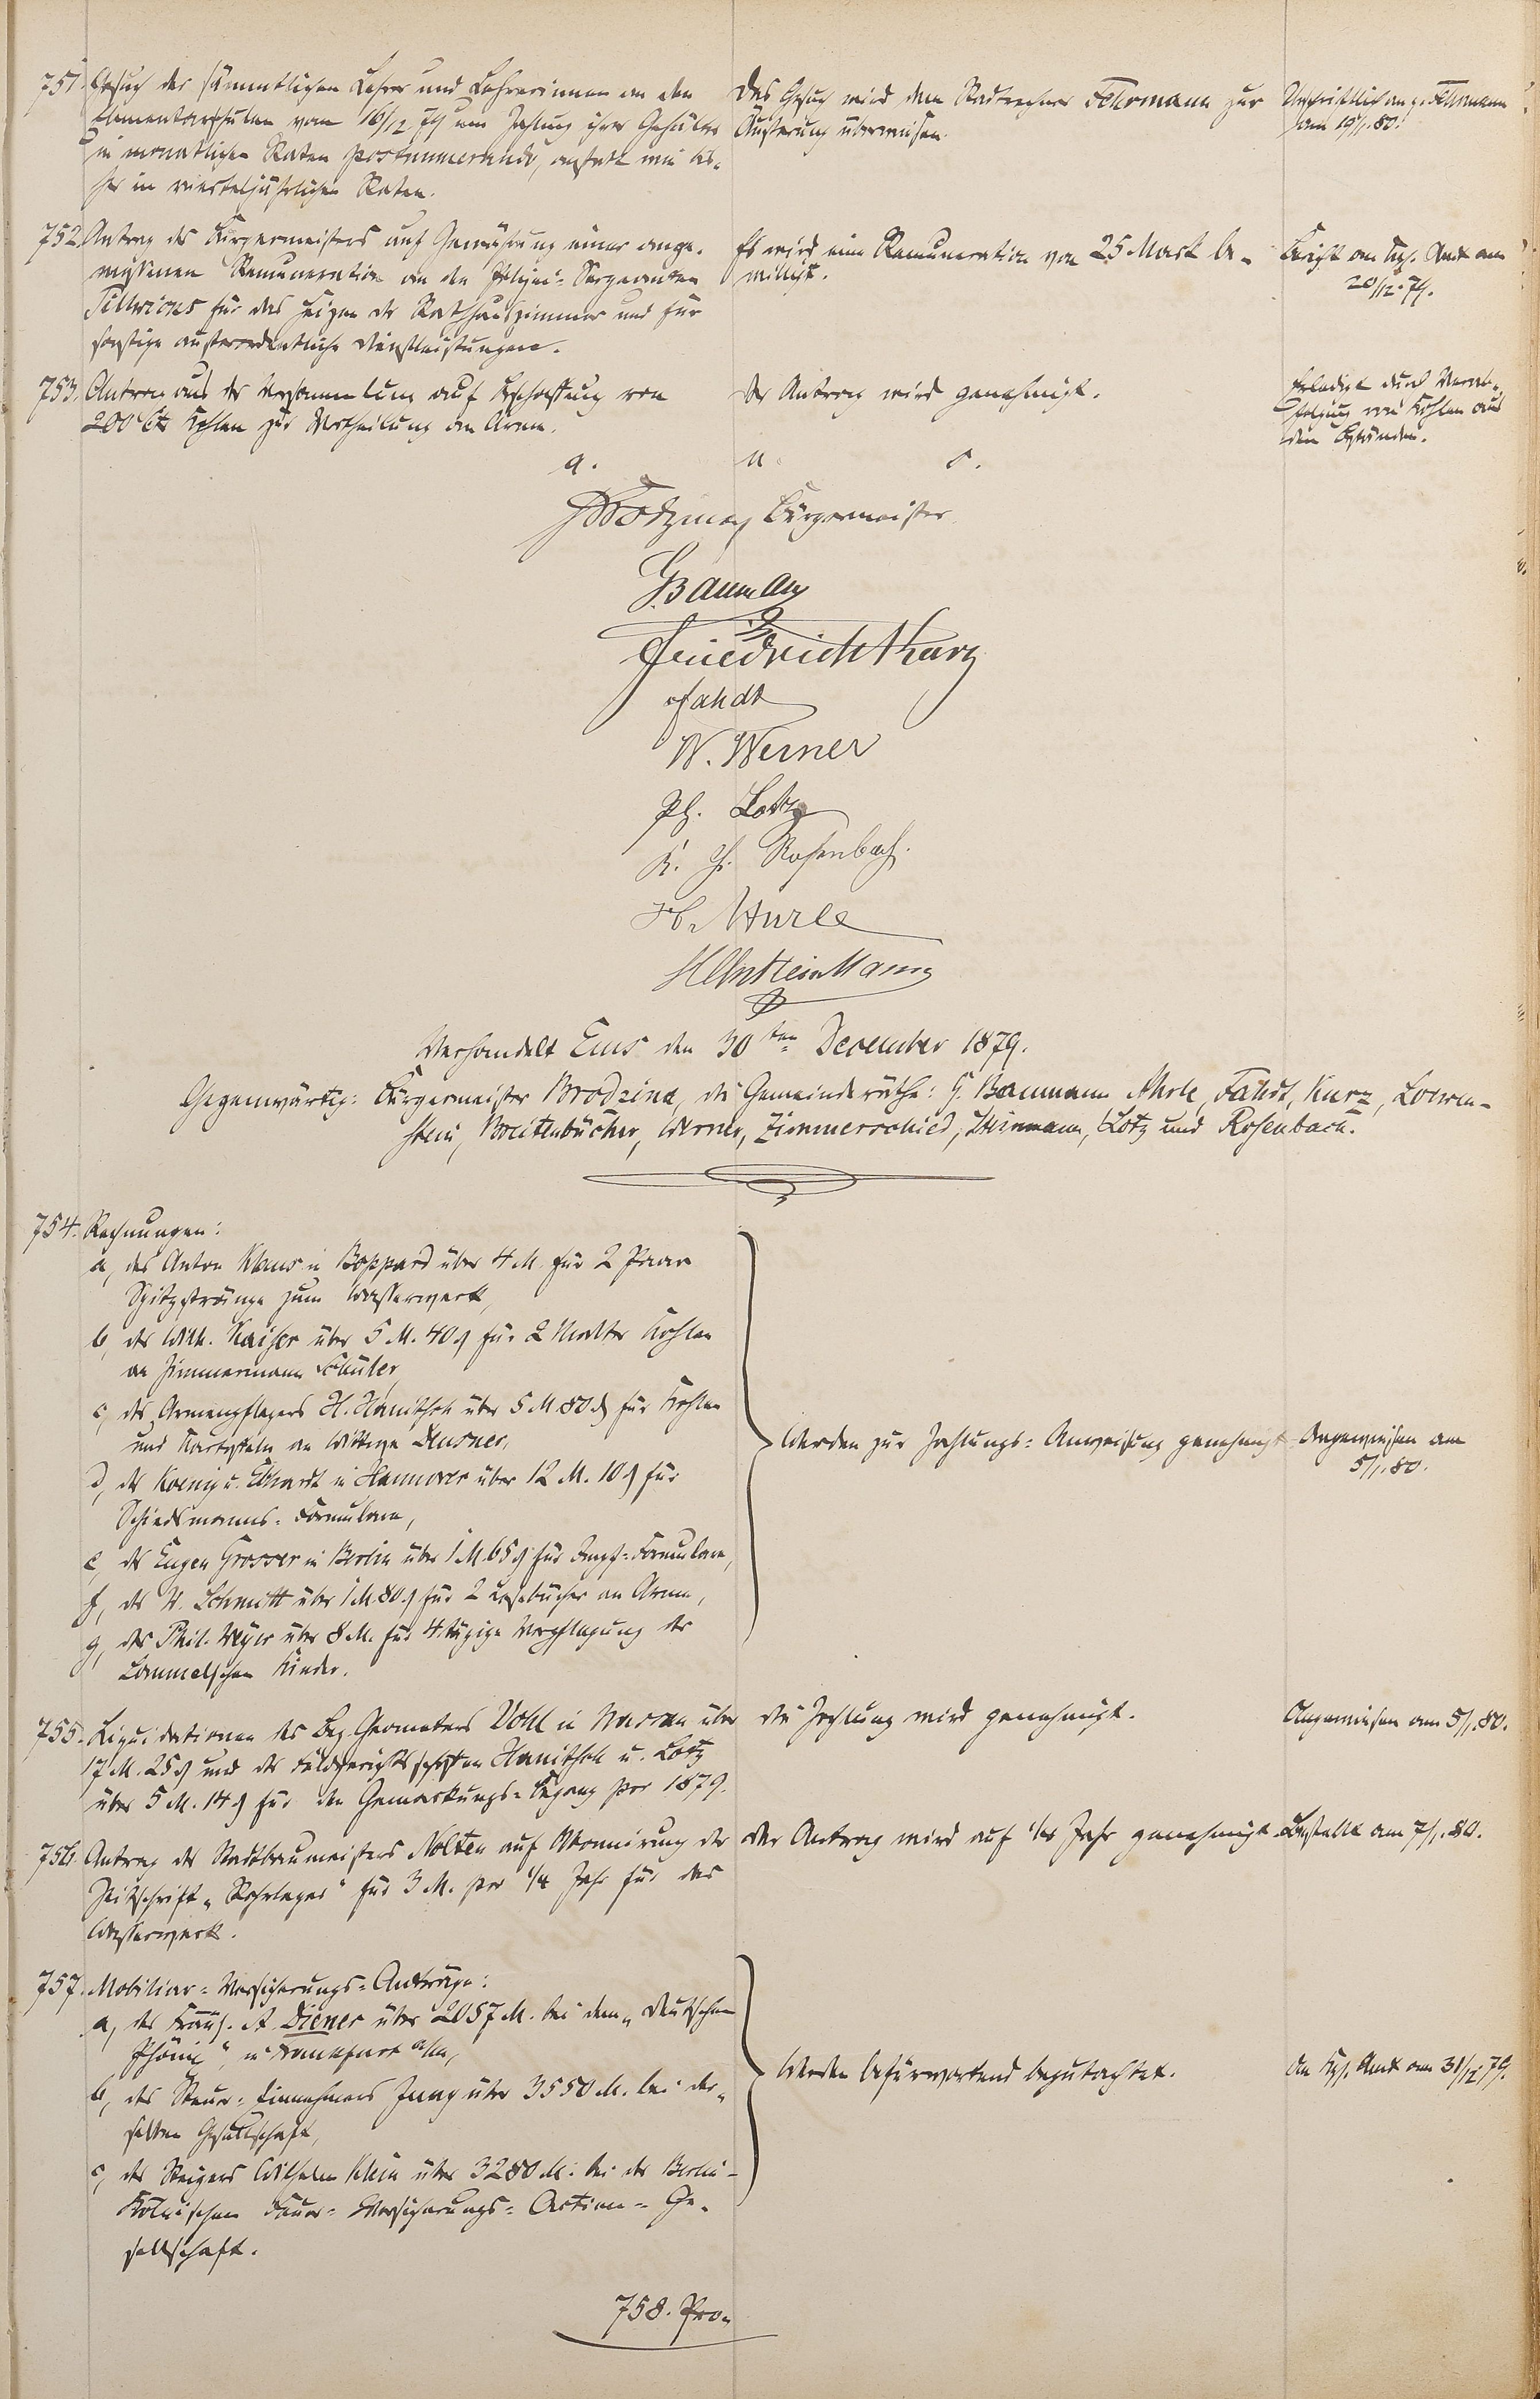 751. Gesuch der sämmtlichen Lehrer und Lehrerinnen an den
Elementarschulen vom 16/12 79 um Zahlung ihrer Gehälter
in monatlichen Raten postnumerando, anstatt wie bis-
her in vierteljährlichen Raten.
Das Gesuch wird dem Stadtrechner Fehrmann zur
Äußerung überwiesen.
Urschriftlich an p. Fehrmann
am 10/1. 80.
752. Antrag des Bürgermeisters auf Gewährung einer ange-
messenen Remuneration an den Polizei-Sergeanten
für das Heizen der Rathhauszimmer und für
sonstige außerordentliche Dienstleistungen.
Es wird eine Remuneration von 25 Mark be-
willigt.
Bericht an Kgl. Amt am
20/12. 79.
753. Antrag aus der Versammlung auf Beschaffung von
200 Ctr Kohlen zur Vertheilung an Arme.
Der Antrag wird genehmigt.
Erledigt durch Verab-
folgung von Kohlen aus
den Beständen.
a. u. s.
Bürgermeister
G. Baumann
Friedrich Kurz
Fahdt
W. Werner
Ph. Lotz
K. H. Rosenbach.
Verhandelt Ems den 30ten December 1879.
Gegenwärtig: Bürgermeister Brodzina, die Gemeinderäthe: G. Baumann Ahrle, Fahdt, Kurz, Loewen-
stein, Breitenbücher, Werner, Zimmerschied, Steinmann, Lotz und Rosenbach.
754. Rechnungen:
a, des Anton Klaus in Boppard über 4 M. für 2 Paar
Spitzstränge zum Wasserwerk,
b, des Wilh. Kaiser über 5 M. 40 ₰ für 2 Malter Kohlen
an Zimmermann Schuler
c, des Armenpflegers H. Hanitsch über 5 M. 80 ₰ für Kohlen
und Kartoffeln an Wittwe Deusner,
d, der Koenig u. Ebhardt in Hannover über 12 M. 10 ₰ für
Schiedsmanns-Formulare,
e, des Eugen Grosser in Berlin über 1 M. 65 ₰ für Impf-Formulare,
f, des W. Schmitt über 1 M. 80 ₰ für 2 Lesebücher an Arme,
g, des Phil. Meyer über 8 M. für 4 tägige Verpflegung der
Lommelschen Kinder.
Werden zur Zahlungs-Anweisung genehmigt
Angewiesen am
5/1. 80.
755. Liquidationen des Bez. Geometers Vohl in Nassau über
17 M. 25 ₰ und der Feldgerichtsschöffen Hanitsch u. Lotz
über 5 M. 14 ₰ für den Gemarkungs-Begang pro 1879.
Die Zahlung wird genehmigt.
Angewiesen am 5/1. 80.
756. Antrag des Stadtbaumeisters Nolten auf Abonnirung der
Zeitschrift „Rohrleger" für 3 M. pro 1/4 Jahr für das
Wasserwerk.
Der Antrag wird auf 1/4 Jahr genehmigt.
Bestellt am 7/1. 80.
757. Mobiliar-Versicherungs-Anträge:
a, des A. Diener über 2057 M. bei dem „Deutschen
Phönix", in Frankfurt a/M,
b, des Steuer-Einnehmers Jung über 3550 M. bei der-
selben Gesellschaft,
c, des Steigers Wilhelm Klein über 3280 M. bei der Berlin-
Kölnischen Feuer-Versicherungs-Actien-Ge-
sellschaft.
Werden befürwortend begutachtet.
An Kgl. Amt am 31/12 79.
758. Pro-